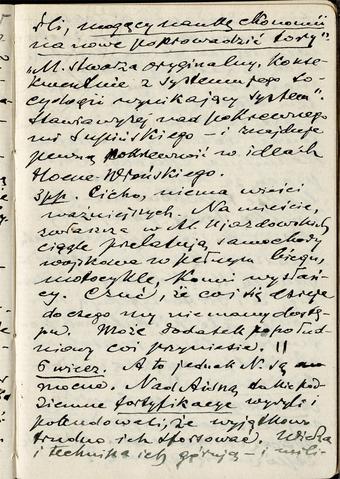 śli, mogący naukę ekonomii
na nowe poprowadzić tory".
"M. stwarza oryginalny, konse-
kwentnie z systemu jego so-
cyologii wynikający system".
Stawia wyżej nad pokrewnego
mu Supińskiego – i znajduje
pewną pokrewność w ideach
Hoene-Wrońskiego.
3 pp. Cicho, niema wieści
ważniejszych. Na mieście,
zwłaszcza w Al. Ujazdowskich
ciągle przelatują samochody
wojskowe w pełnym biegu,
motocykle, konni wysłań-
cy. Czuć, że coś się dzieje
do czego my nie mamy dostę-
pu. Może dodatek popołud-
niowy coś przyniesie. ||
6 wiecz. A to jednak N. są
mocne. Nad Aisną
ziemne fortyfikacje wyryli i
że wyjątkowo
trudno ich sforsować. Widzą
i technika ich górują – i mili-